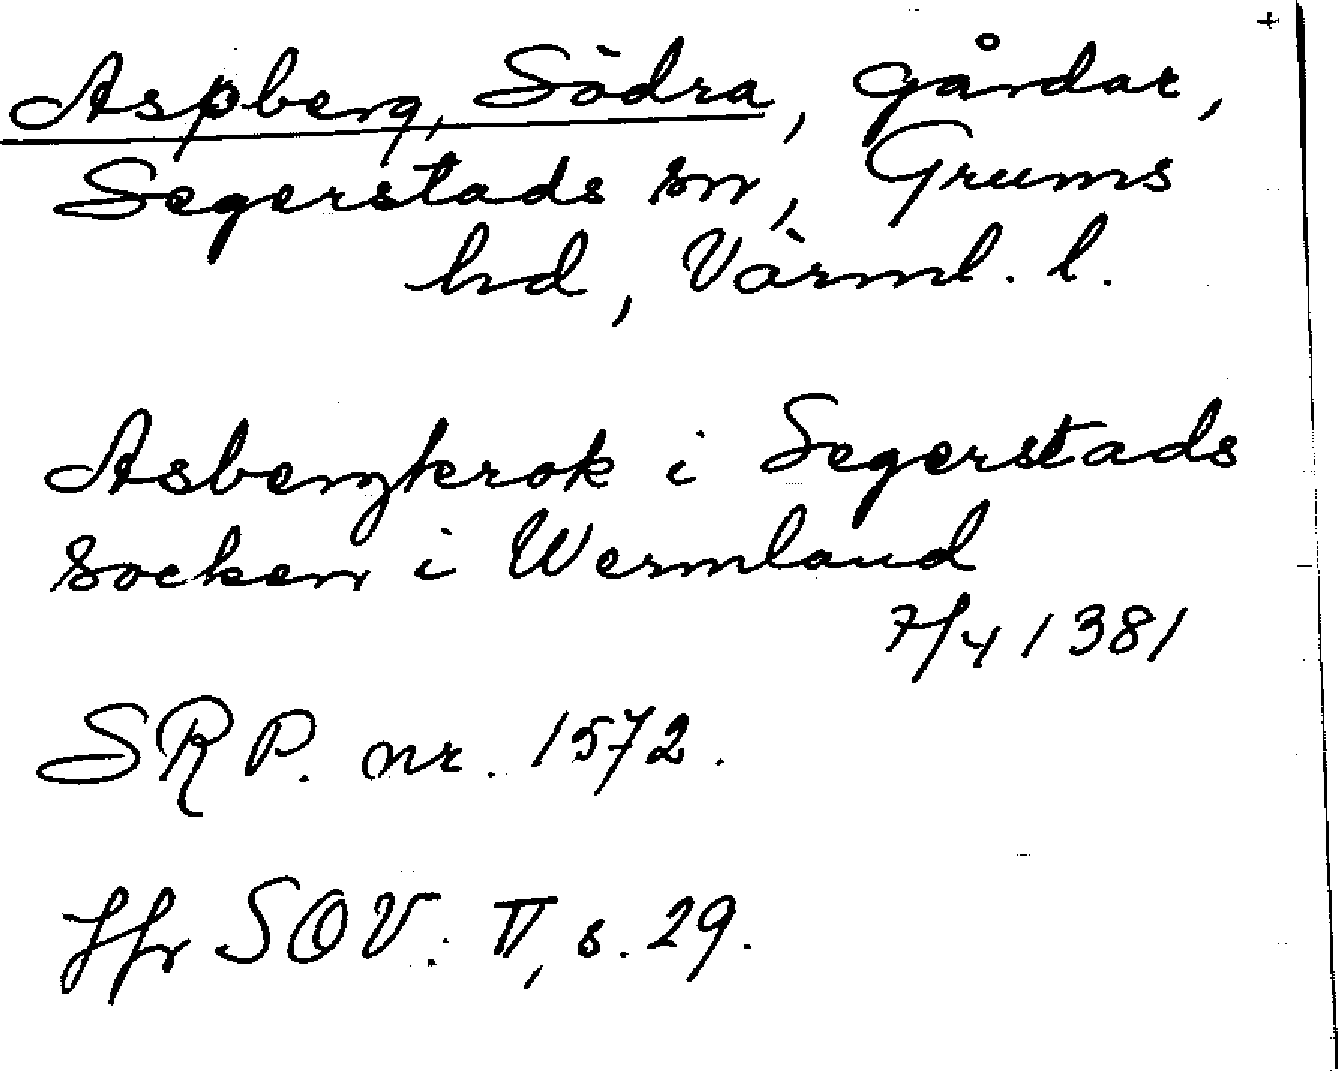 Aspberg, Södra, gårdar,
Segerstads sn, Grums
hd, Värml. l.
Asbergkrok i Segerstads
socken i Wermland
7/4 1381
SRP. nr. 1572.
Jfr SOV. V, s. 29.